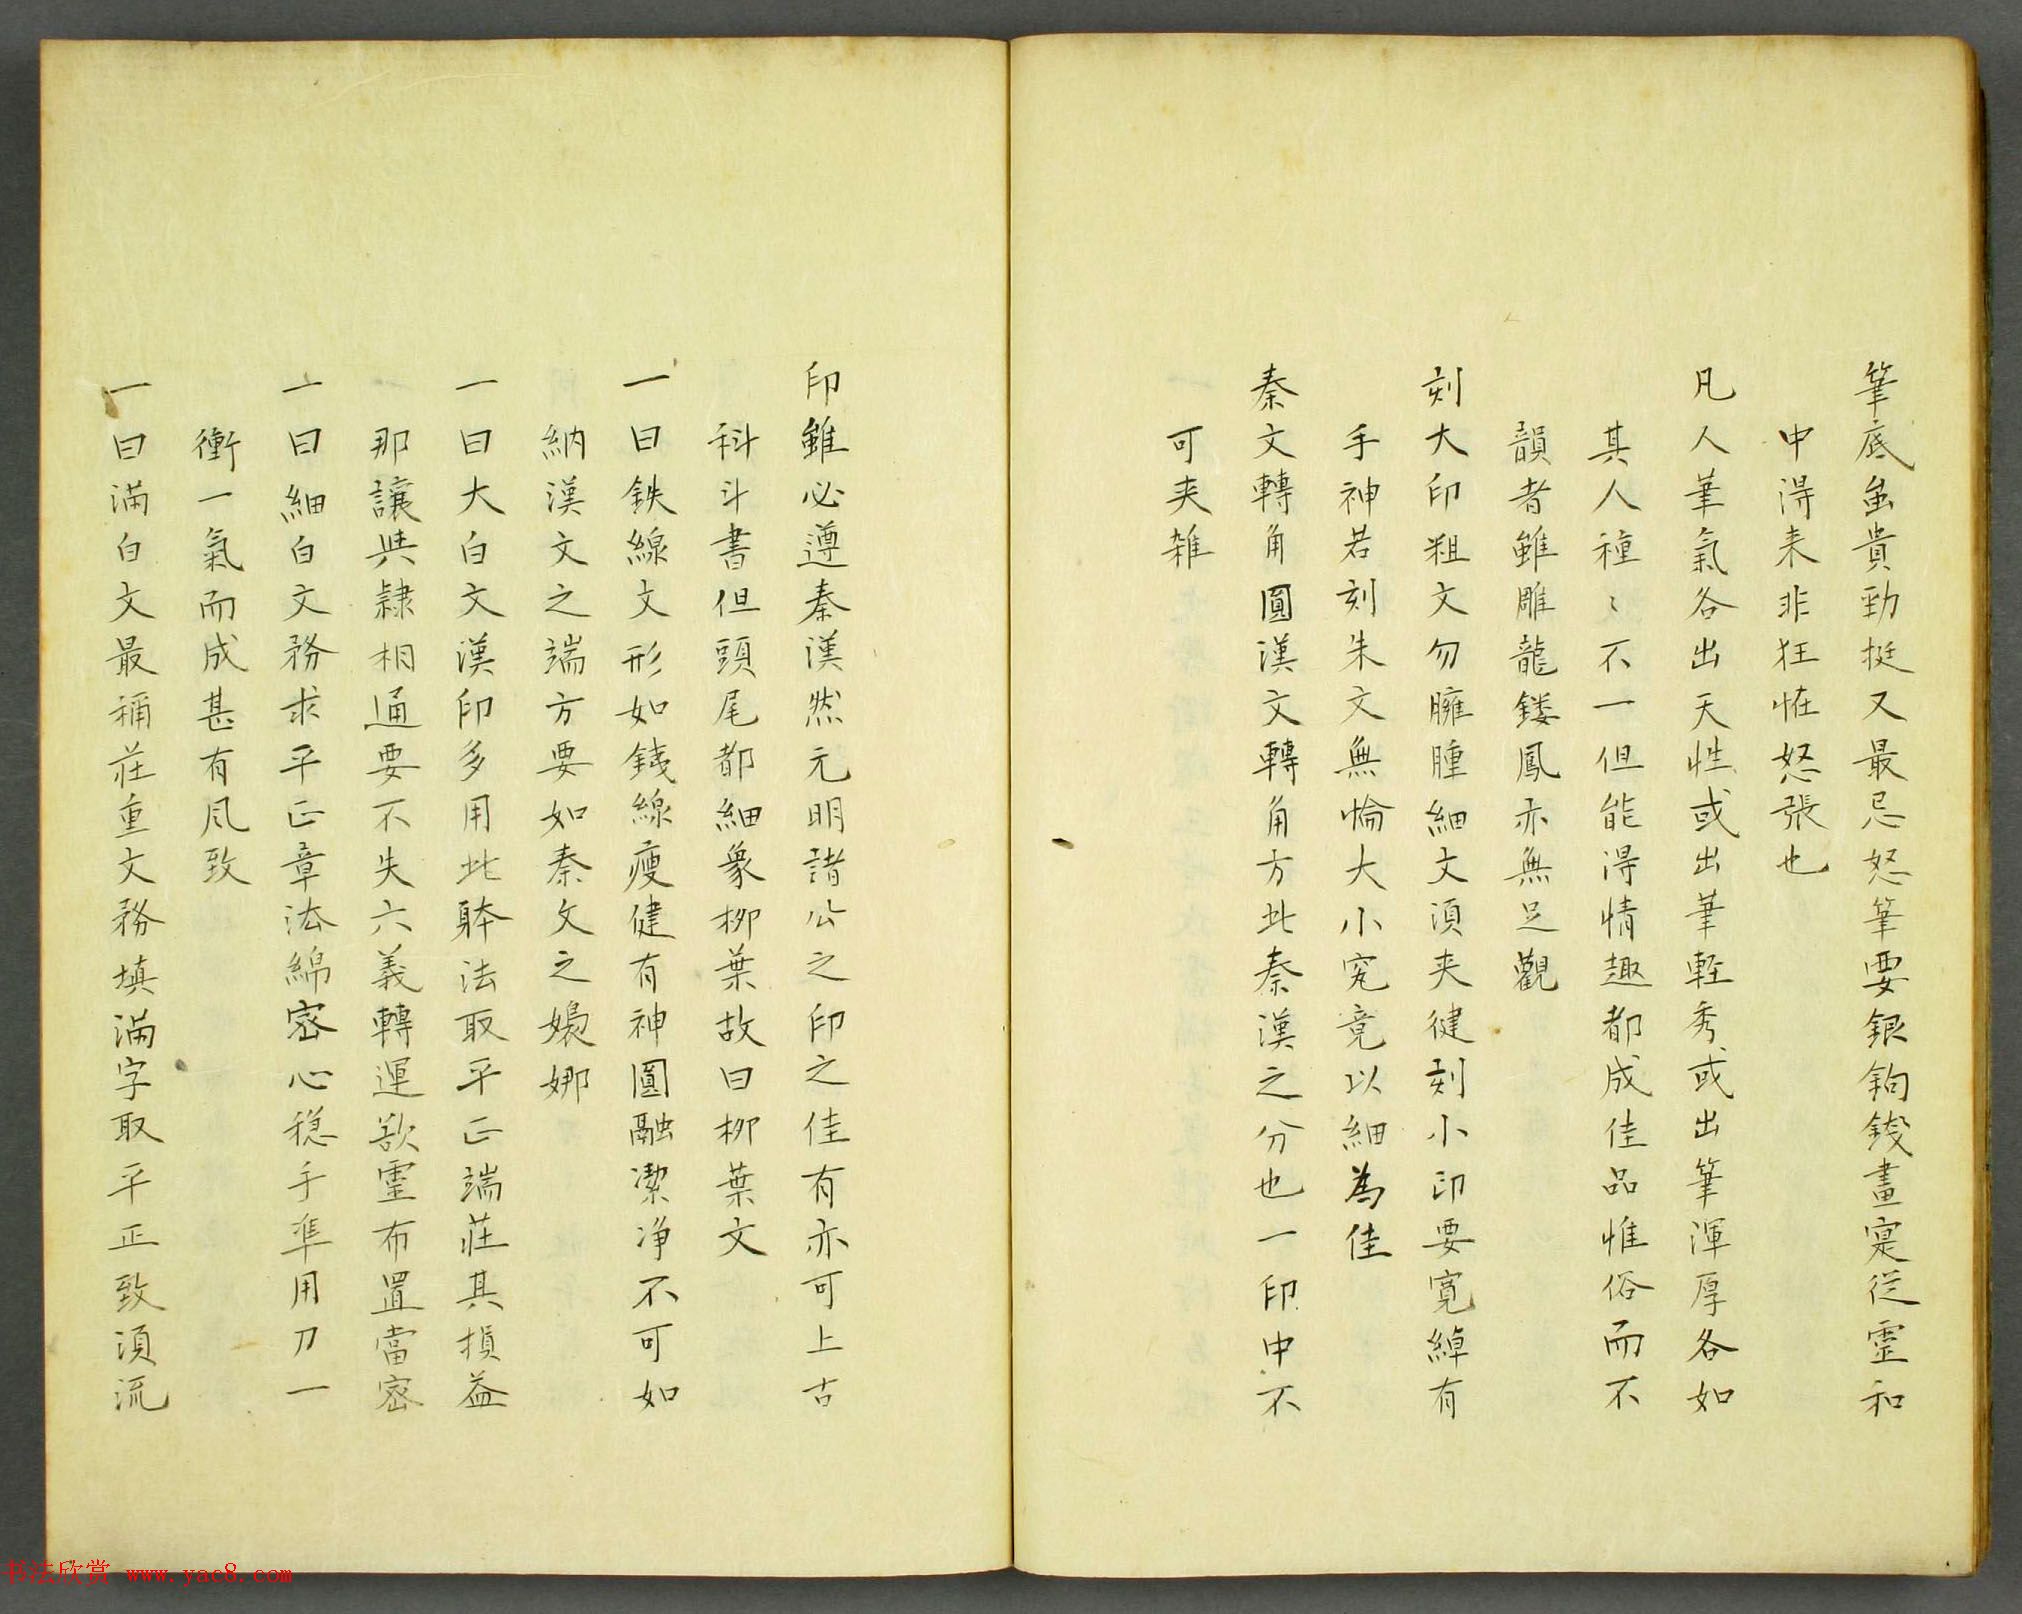 筆底虽貴勁挺又最忌怒筆要銀鉤鉄畫寔從霊和
中淂来非狂怪怒張也
凡人筆氣各出天性或出筆軽秀或出筆渾厚各如
其人種〻不一但能淂情趣都成佳品惟俗而不
韻者雖雕龍鏤鳳亦無足觀
刻大印粗文勿臃腫細文湏夹健刻小印要寛綽有
手神若刻朱文無惀大小究竟以細為佳
秦文轉角圓漢文轉角方此秦漢之分也一印中不
可夹雑
印雖必遵秦漢然元明諸公之印之佳有亦可上古
科斗書但頭尾都細象柳葉故曰柳葉文
一曰鉄線文形如鉄線瘦健有神圓融潔净不可如
納漢文之端方要如秦文之嬝娜
一曰大白文漢印多用此躰法取平正端莊其損益
那讓與隷相通要不失六義轉運欲霊布置當密
一曰細白文務求平正章法綿密心穏手準用刀一
衝一氣而成甚有風致
一曰滿白文最稱莊重文務填滿字取平正致湏流
书法欣赏 www.yac8.com